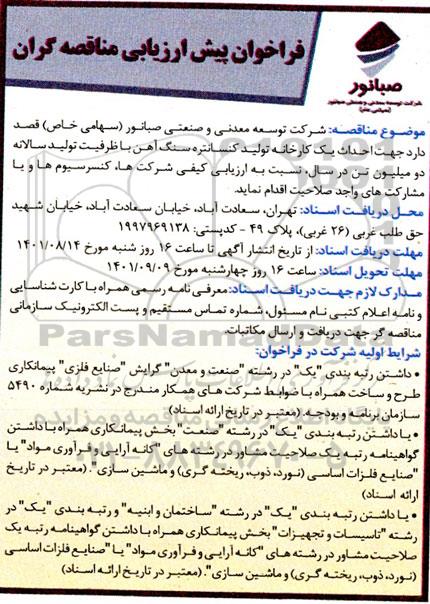 فراخوان پیش ارزیابی مناقصه گران
صبانور
شرکت توسعه معدنی و صنعتی صبانور
(سهامی خاص)
موضوع مناقصه: شرکت توسعه معدنی و صنعتی صبانور (سهامی خاص) قصد
دارد جهت احداث یک کارخانه تولید کنسانتره سنگ آهن با ظرفیت تولید سالانه
دو میلیون تن در سال، نسبت به ارزیابی کیفی شرکت ها، کنسرسیوم ها و یا
مشارکت های واجد صلاحیت اقدام نماید.
محل دریافت اسناد: تهران، سعادت آباد، خیابان سعادت آباد، خیابان شهید
حق طلب غربی (۲۶ غربی)، پلاک ۴۹ - کدپستی: ۱۹۹۷۹۶۹۱۳۸
مهلت دریافت اسناد: از تاریخ انتشار آگهی تا ساعت ۱۶ روز شنبه مورخ ۱۴۰۱/۰۸/۱۴
مهلت تحویل اسناد: ساعت ۱۶ روز چهارشنبه مورخ ۱۴۰۱/۰۹/۰۹
مدارک لازم جهت دریافت اسناد: معرفی نامه رسمی همراه با کارت شناسایی
و نامه اعلام کتبی نام مسئول، شماره تماس مستقیم و پست الکترونیک سازمانی
مناقصه گر جهت دریافت و ارسال مکاتبات.
شرایط اولیه شرکت در فراخوان:
• داشتن رتبه بندی "یک" در رشته "صنعت و معدن" گرایش "صنایع فلزی" پیمانکاری
طرح و ساخت همراه با ضوابط شرکت های همکار مندرج در نشریه شماره ۵۴۹۰
سازمان برنامه و بودجه. (معتبر در تاریخ ارائه اسناد)
• یا داشتن رتبه بندی "یک" در رشته "صنعت" بخش پیمانکاری همراه با داشتن
گواهینامه رتبه یک صلاحیت مشاور در رشته های "کانه آرایی و فرآوری مواد" یا
"صنایع فلزات اساسی (نورد، ذوب، ریخته گری) و ماشین سازی". (معتبر در تاریخ
ارائه اسناد)
• یا داشتن رتبه بندی "یک" در رشته "ساختمان و ابنیه" و رتبه بندی "یک" در
رشته "تاسیسات و تجهیزات" بخش پیمانکاری همراه با داشتن گواهینامه رتبه یک
صلاحیت مشاور در رشته های "کانه آرایی و فرآوری مواد" یا "صنایع فلزات اساسی
(نورد، ذوب، ریخته گری) و ماشین سازی". (معتبر در تاریخ ارائه اسناد)
ParsNamadData